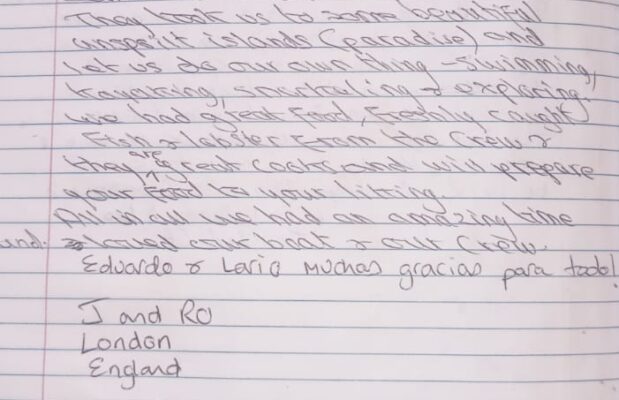 They took us to some beautiful
unspoilt islands (paradise) and
let us do our own thing - swimming,
kayaking, snorkeling & exploring.
we had great food, freshly caught
Fish & lobster from the crew &
they are great cooks and will prepare
your food to your liking.
All in all we had an amazing time
and. loved our boat & our crew.
Eduardo & Lario Muchas gracias para todo!
J and RO
London
England